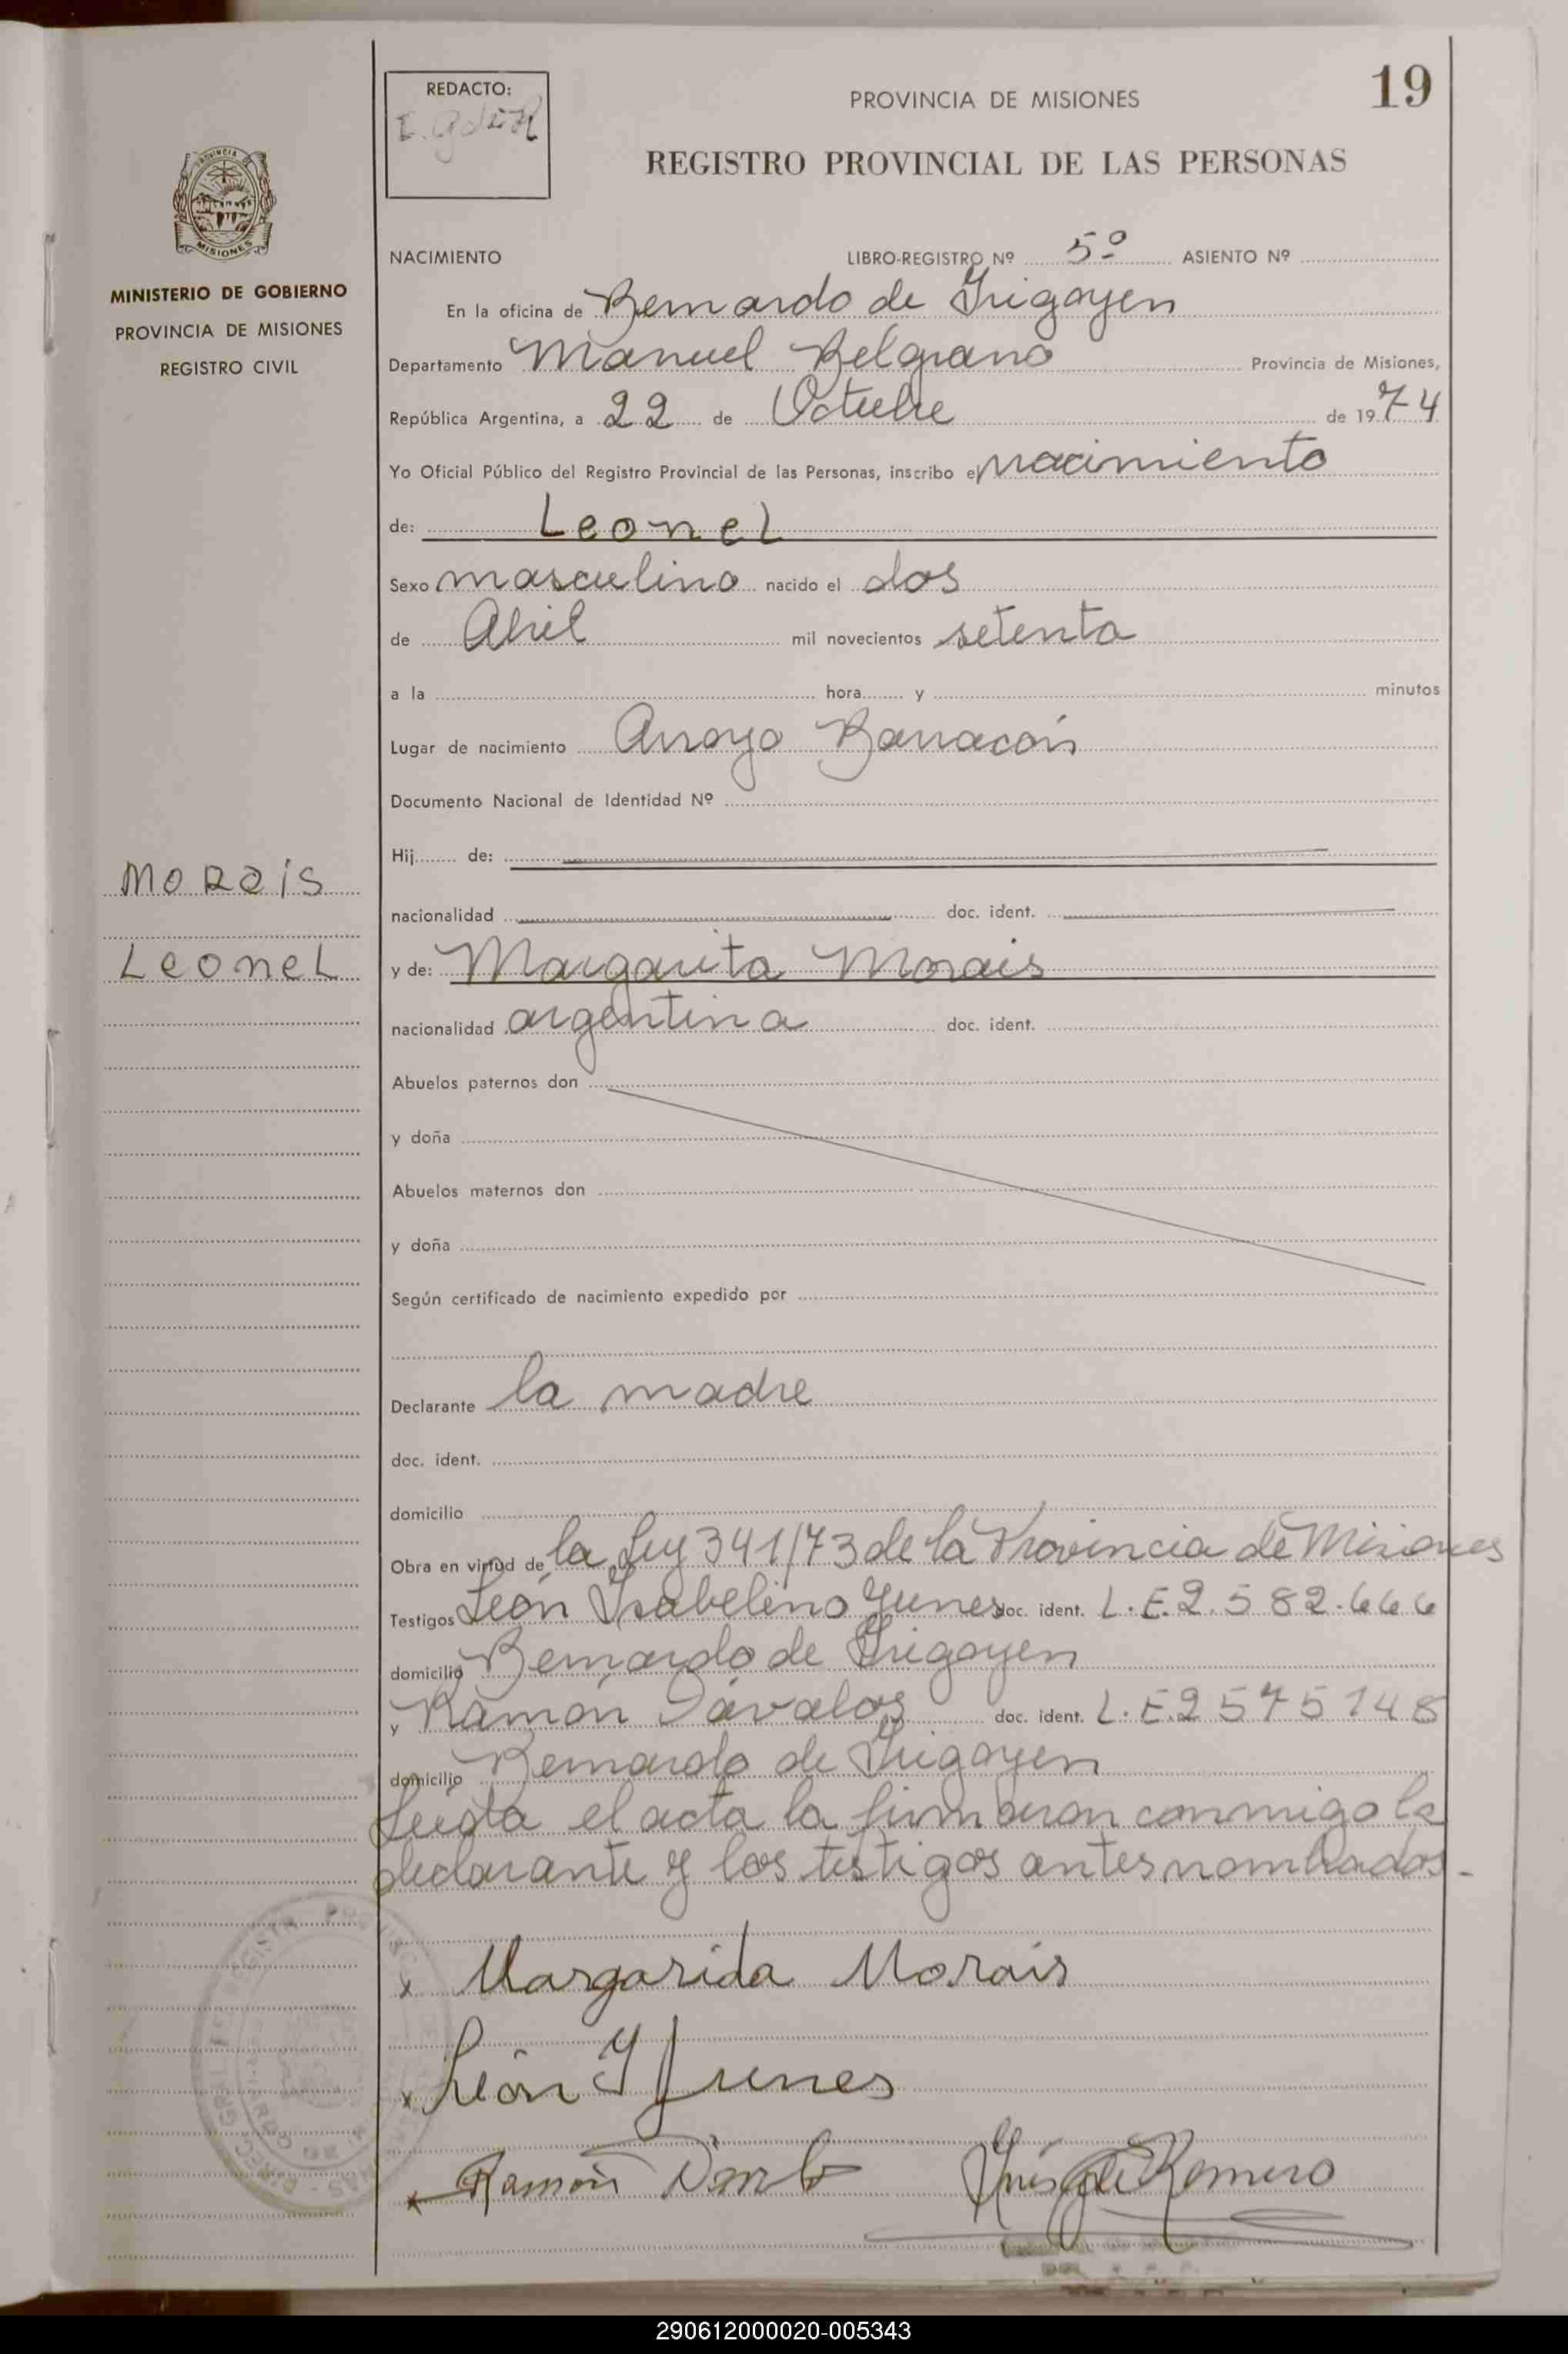 REDACTO:
PROVINCIA DE MISIONES
19
REGISTRO PROVINCIAL DE LAS PERSONAS
PROVINCIA DE
MISIONES
MINISTERIO DE GOBIERNO
PROVINCIA DE MISIONES
REGISTRO CIVIL
NACIMIENTO LIBRO-REGISTRO Nº 5º ASIENTO Nº
En la oficina de Bernardo de Irigoyen
Departamento Manuel Belgrano Provincia de Misiones,
República Argentina, a 22 de Octubre de 1974
Yo Oficial Público del Registro Provincial de las Personas, inscribo el nacimiento
de: Leonel
Sexo masculino nacido el dos
de Abril mil novecientos setenta
a la hora y minutos
Lugar de nacimiento Arroyo Barracón
Documento Nacional de Identidad Nº
Hij de:
Morais
nacionalidad doc. ident.
Leonel
y de: Margarita Morais
nacionalidad argentina doc. ident.
Abuelos paternos don
y doña
Abuelos maternos don
y doña
Según certificado de nacimiento expedido por
Declarante la madre
doc. ident.
domicilio
Obra en virtud de la Ley 341/73 de la Provincia de Misiones
Testigos León Isabelino Yunes doc. ident. L.E.2.582.666
domicilio Bernardo de Irigoyen
y Ramón Dávalos doc. ident. L.E.2575148
domicilio Bernardo de Irigoyen
Leída el acta la firmaron conmigo la
declarante y los testigos antes nombrados.-
x Margarida Morais
x León Y Junes
x Ramón
Inés de Romero
290612000020-005343